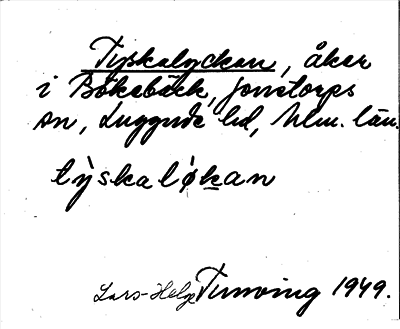 Tyskalyckan, åker
i Bökebäck, Jonstorps
sn, Luggude hd, Mlm. län.
tỳskaløkan
Lars-Helge Tunving 1949.